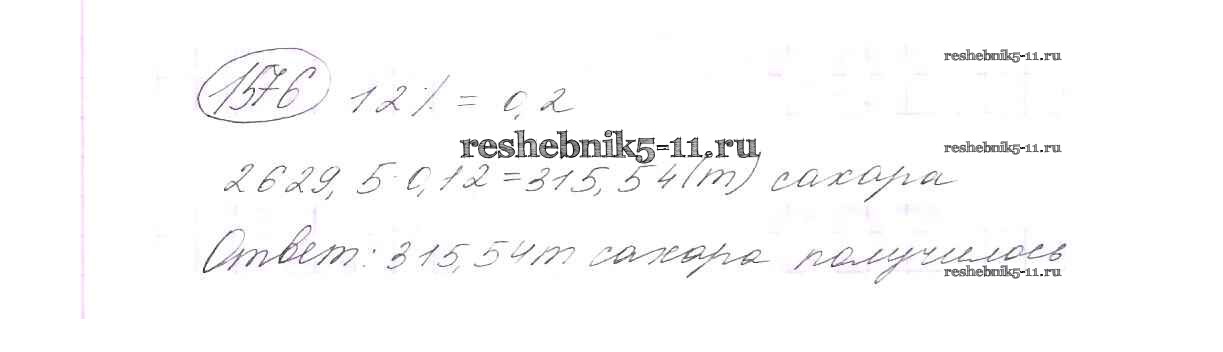 reshebnik5-11.ru
1576 12% = 0,2
reshebnik5-11.ru
reshebnik5-11.ru
2629,5·0,12=315,54(т) сахара
Ответ: 315,54т сахара получилось
reshebnik5-11.ru